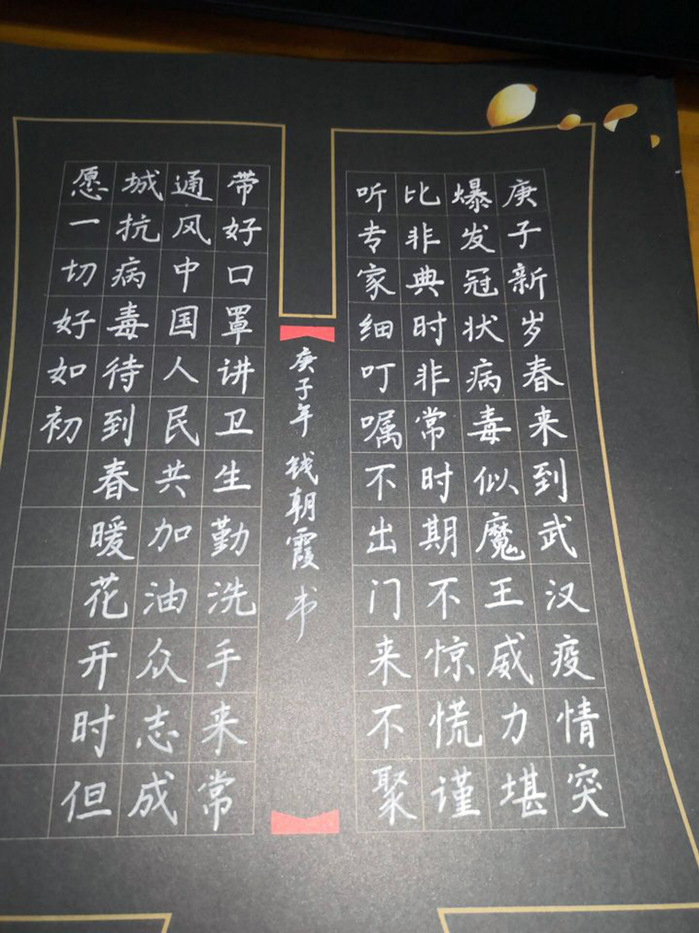 庚子新岁春来到武汉疫情突
爆发冠状病毒似魔王威力堪
比非典时非常时期不惊慌谨
听专家细叮嘱不出门来不聚
带好口罩讲卫生勤洗手来常
通风中国人民共加油众志成
城抗病毒待到春暖花开时但
愿一切好如初
庚子年钱朝霞书